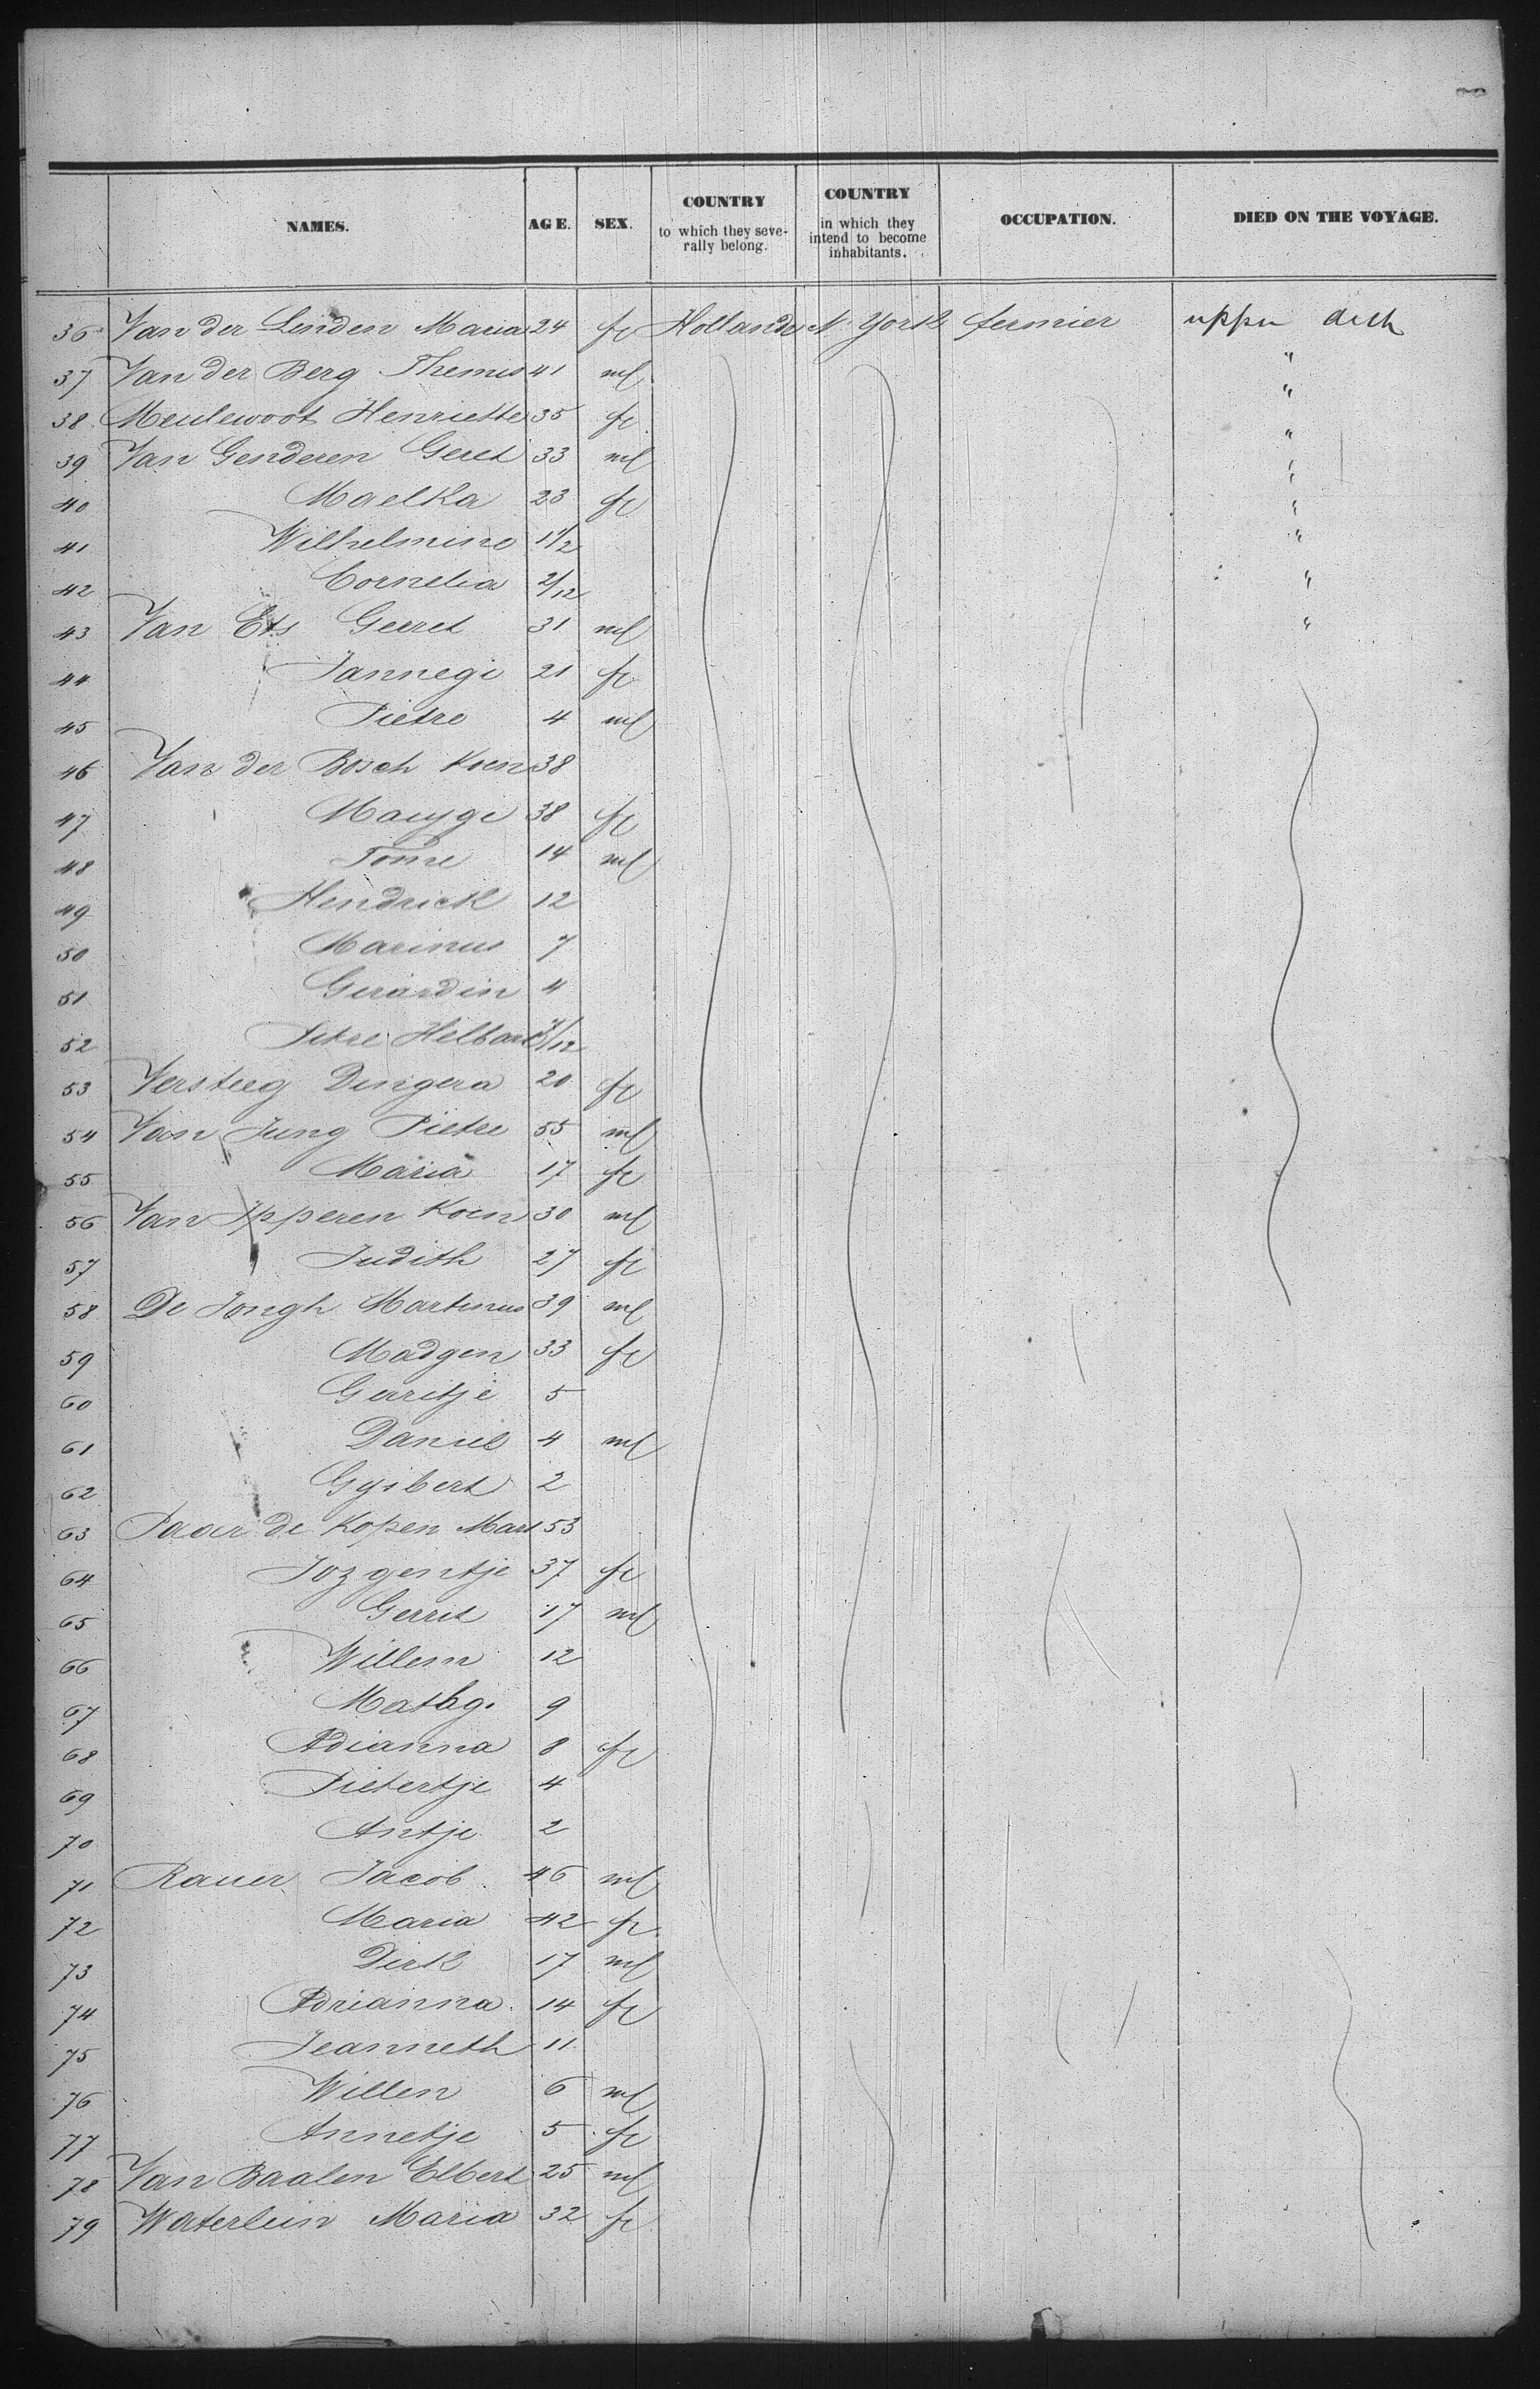 NAMES. AGE. SEX. COUNTRY to which they seve- rally belong. COUNTRY in which they intend to become inhabitants. OCCUPATION. DIED ON THE VOYAGE.
36 Van der Linden Maria 24 fe Hollande N. York fermier upper deck
37 Van der Berg Themis 41 ml "
38 Meulewoot Henriette 35 fe "
39 Van Genderen Geret 33 ml "
40 Maelka 23 fe "
41 Wilhelmine 1 1/2 "
42 Cornelia 2/12 "
43 Van Ets Geeret 31 ml "
44 Jannege 21 fe
45 Pietre 4 ml
46 Van der Bosch Koen 38
47 Mauyge 38 fe
48 Tome 14 ml
49 Hendrick 12
50 Marinus 7
51 Gerardin 4
52 Petre Helbart /12
53 Versteeg Dingera 20 fe
54 Van Jung Pietre 55 ml
55 Maria 17 fe
56 Van Ipperen Koen 30 ml
57 Judith 27 fe
58 De Jongh Martinus 39 ml
59 Madgen 33 fe
60 Gerritje 5
61 Daniel 4 ml
62 Gysbert 2
63 de Kopen Mart 53
64 Jozgentje 37 fe
65 Gerrit 17 ml
66 Willem 12
67 Mathg. 9
68 Adianna 8 fe
69 Pietertje 4
70 Antje 2
71 Rauer Jacob. 46 ml
72 Maria 42 fe
73 Dirk 17 ml
74 Adrianna. 14 fe
75 Jeanneth 11
76 Willen 6 ml
77 Annetje 5 fe
78 Van Baalen Elbert 25 ml
79 Waterlein Maria 32 fe